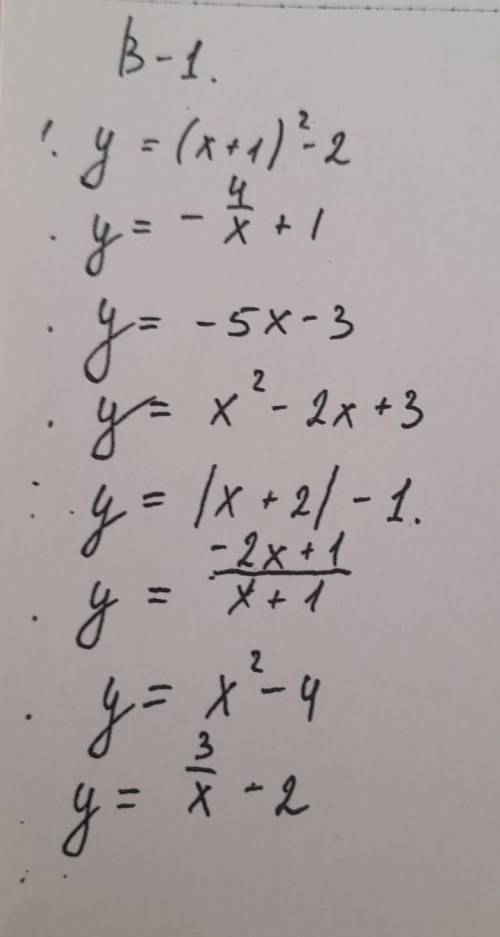 В-1.
y = (x+1)² - 2
y = - 4/x + 1
y = -5x - 3
y = x² - 2x + 3
y = |x + 2| - 1.
y = (-2x + 1)/(x + 1)
y = x² - 4
y = 3/x - 2